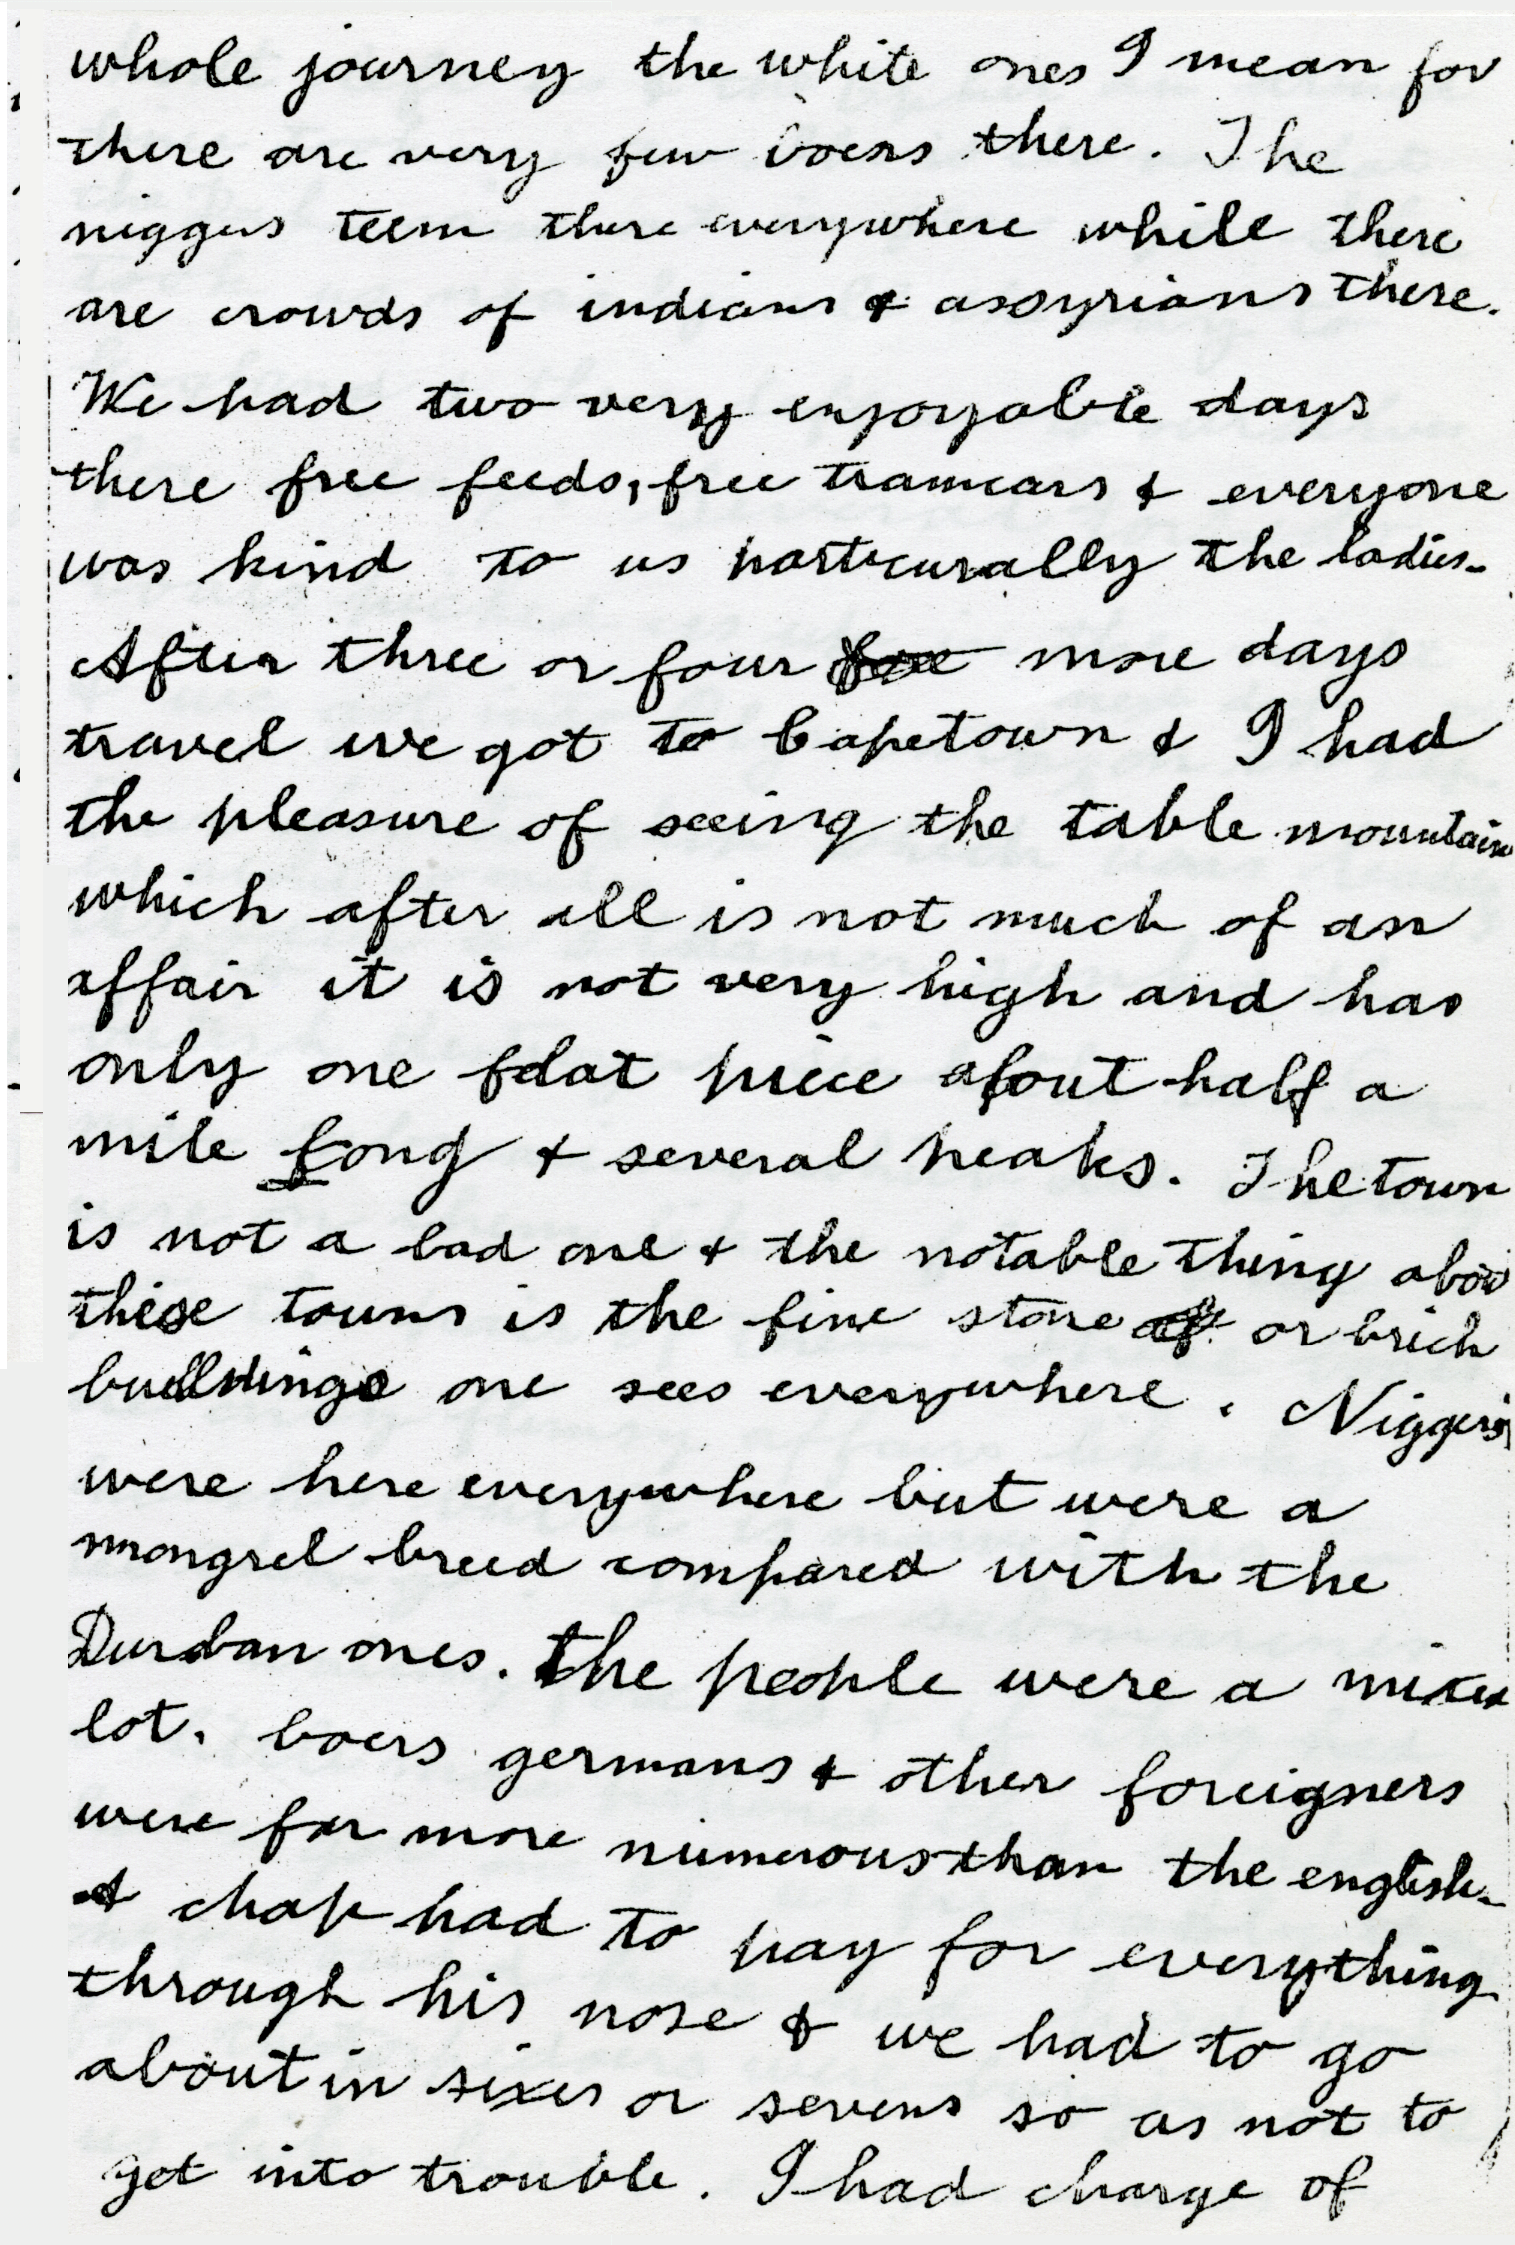 whole journey the white ones I mean for
there are very few boers there. The
niggers teem there everywhere while there
are crowds of indians & assyrians there.
We had two very enjoyable days
there free feeds, free tramcars & everyone
was kind to us particurally the ladies.
After three or four more days
travel we got to Capetown & I had
the pleasure of seeing the table mountain
which after all is not much of an
affair it is not very high and has
only one flat piece about half a
mile long & several peaks. The town
is not a bad one & the notable thing abou
these towns is the fine stone or brick
buildings one sees everywhere. Niggers
were here everywhere but were a
mongrel breed compared with the
Durban ones. The people were a mixed
lot. boers germans & other foreigners
were far more numerous than the english.
A chap had to pay for everything
through his nose & we had to go
about in sixes or sevens so as not to
get into trouble. I had charge of